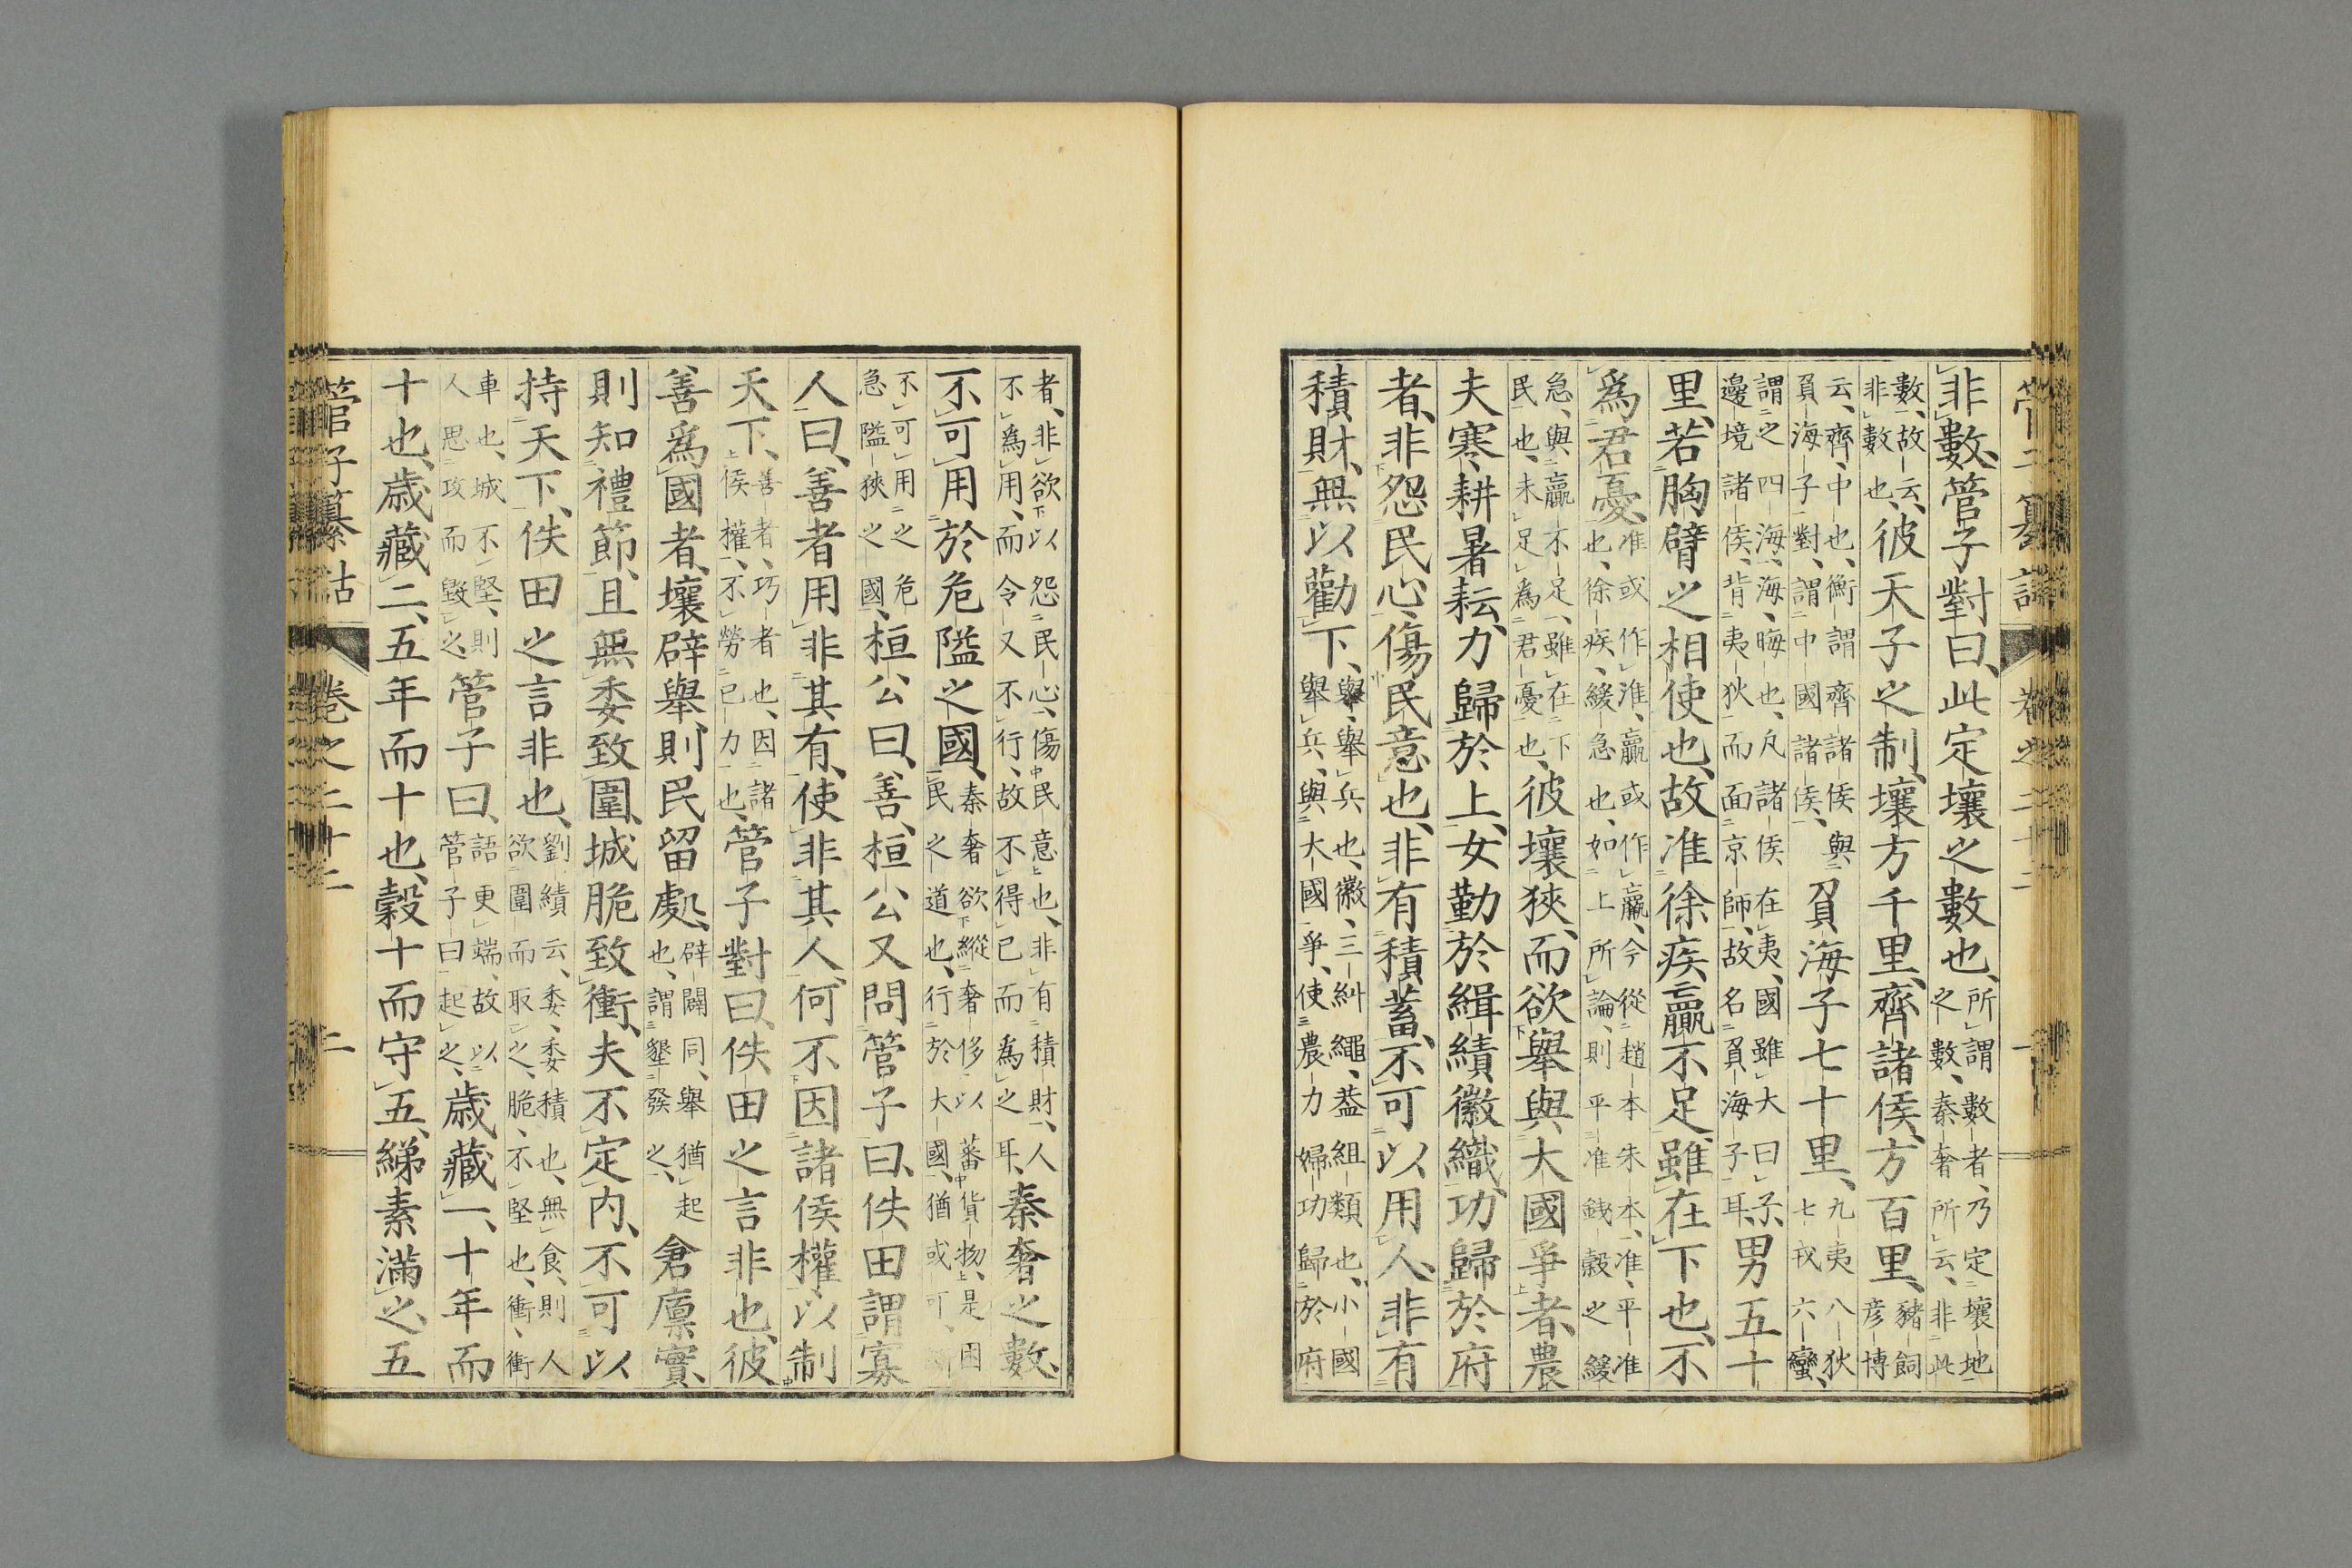 管子纂詁 卷之二十二 一
非數、管子對曰、此定壤之數也、所謂數者、乃定壤地
之數、秦奢所云、非此
數、故云
非數也、彼天子之制、壤方千里、齊諸侯、方百里、豬飼
彦博
云、齊、中也、衡謂齊諸侯與
負海子對、謂中國諸侯、負海子七十里、九夷八狄
七戎六蠻、
謂之四海、海、晦也、凡諸侯在夷、國雖大曰子
邊境諸侯、背夷狄而面京師、故名負海子耳、男五十
里、若胸臂之相使也、故准徐疾、羸不足、雖在下也、不
為君憂、准或作淮、羸或作贏、今從趙本朱本、准、平准
也、徐疾、緩急也、如上所論、則平准錢穀之緩
急、與羸不足、雖在下
民也、未足為君憂也、彼壤狹、而欲舉與大國爭者、農
夫寒耕暑耘、力歸於上、女勤於緝績徽織、功歸於府
者、非怨民心、傷民意也、非有積蓄、不可以用人、非有
積財、無以勸下、舉、舉兵也、徽、三糾繩、葢組類也、小國
舉兵、與大國爭、使農力婦功歸於府
者、非欲以怨民心、傷民意也、非有積財、人
不為用、而令又不行、故不得已而為之耳、秦奢之數、
不可用於危隘之國、秦奢欲縱奢侈以蕃貨物、是困
民之道也、行於大國、猶或可、
不可用之危
急隘狹之國、桓公曰、善、桓公又問管子曰、佚田謂寡
人曰、善者用非其有、使非其人、何不因諸侯權以制
天下、善者、巧者也、因諸
侯權、不勞己力也、管子對曰、佚田之言非也、彼
善為國者、壤辟舉、則民留處、辟闢同、舉猶起
也、謂墾發之、倉廩實、
則知禮節、且無委致圍、城脆致衝、夫不定內、不可以
持天下、佚田之言非也、劉績云、委、委積也、無食、則人
欲圍而取之、脆、不堅也、衝、衝
車也、城不堅、則
人思攻而毀之、管子曰、語更端、故以
管子曰起之、歲藏一、十年而
十也、歲藏二、五年而十也、穀十而守五、綈素滿之、五
管子纂詁 卷之二十二 二